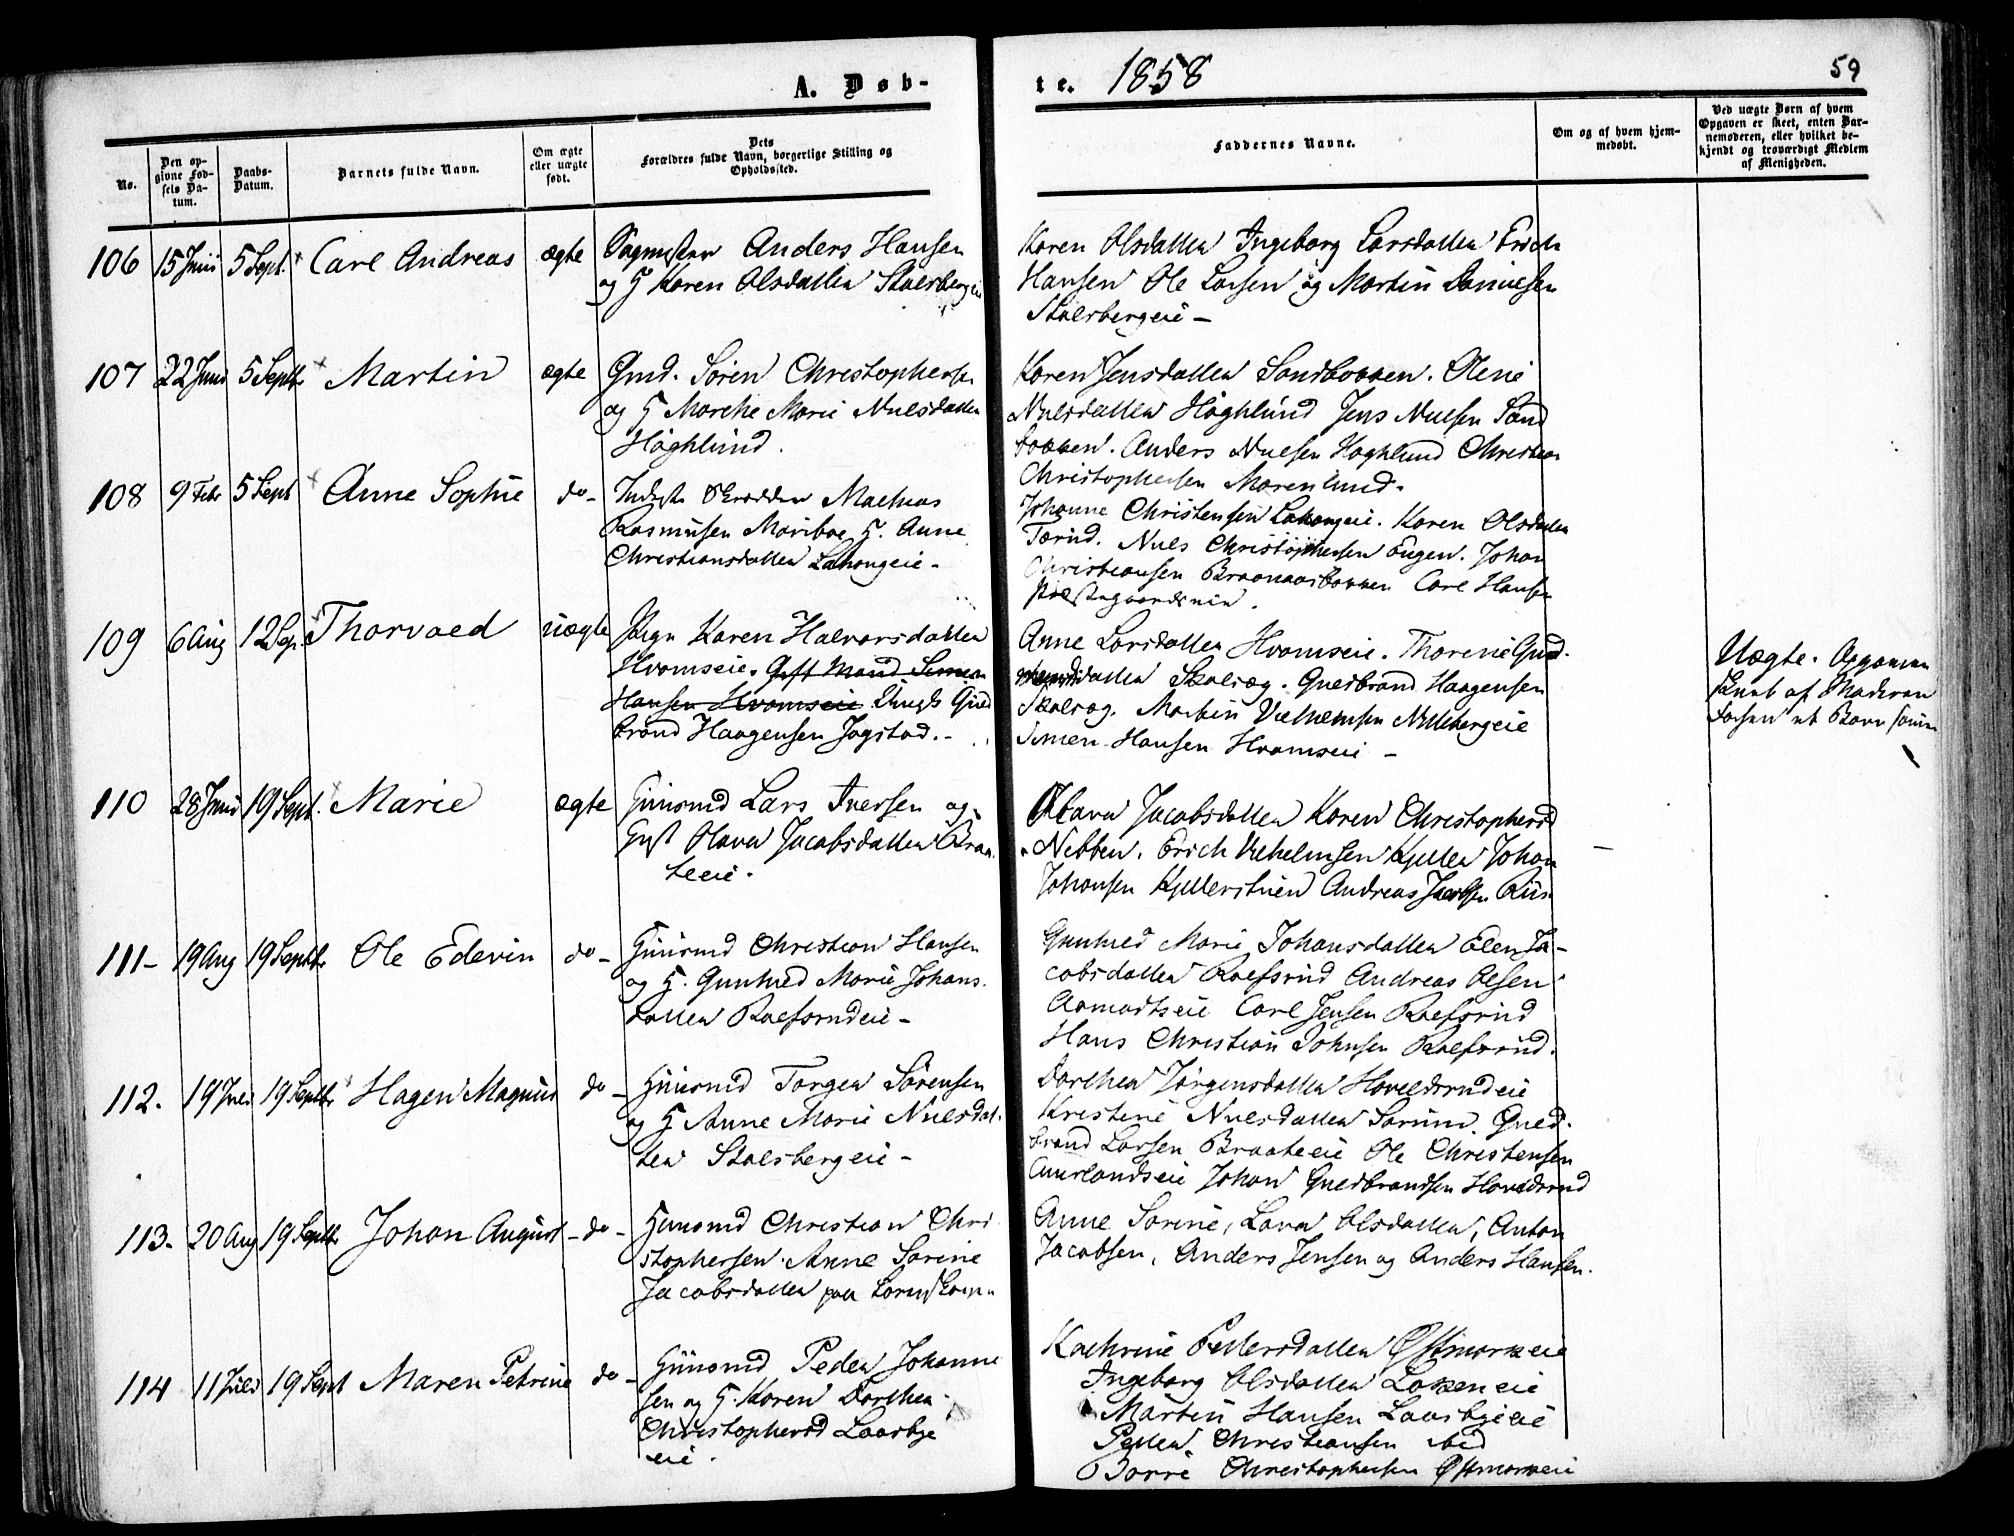 A. Døb-
te. 1858
59
No.
Den op-
givne Fød-
sels Da-
tum.
Daabs-
Datum.
Barnets fulde Navn.
Om ægte
eller uægte
født.
Dets
Forældres fulde Navn, borgerlige Stilling og
Opholdssted.
Faddernes Navne.
Om og af hvem hjem-
medøbt.
Ved uægte Børn af hvem
Opgaven er skeet, enten Bar-
nemoderen, eller hvilket be-
kjendt og troværdigt Medlem
af Menigheden.
106 15 Juni 5 Sept. Carl Andreas ægte Sagmester Anders Hansen
og H Karen Olsdatter Stalsbergeie
Karen Olsdatter Ingeborg Larsdatter Erich
Hansen Ole Larsen og Martin Danielsen
Stalsbergeie –
107 22 Juni 5 Septbr Martin ægte Gmd. Søren Christophersen
og H Marthe Marie Nielsdatter
Høghlund.
Karen Jensdatter Sandbakken. Oline
Nielsdatter Høghlund Jens Nielsen Sand
bakken. Anders Nielsen Høghlund Christian
Christophersen Marenlund.
108 9 Febr 5 Sept Anne Sophie do – Skrædder Mathias
Rasmusen Mariboe H. Anne
Christiansdatter Lahaugeie –
Johanne Christensen Lahaugeie. Karen Olsdatter
Tærud. Niels Christophersen Engen. Johan
Christiansen Braanaasbakken Carl Hansen
Præstegaardseie.
109 6 Aug 12 Sep. Thorvald uægte Pige Karen Halvorsdatter
Hvamseie. Gift Mand Simen
Hansen Hvamseie Ungk Guld
brand Haagensen Jogstad. –
Anne Larsdatter Hvamseie. Thorine Gud-
datter Skalrag. Gulbrand Haagensen
Skalrag. Martin Vilhelmsen Nittebergeie
Simen Hansen Hvamseie –
Uægte. Opgaven
skeet af Moderen
110 28 Juni 19 Sept. Marie ægte Huusmd Lars Iversen og
Gift Olava Jacobsdatter Braa
teeie.
Olava Jacobsdatter Karen Christophersd
Nebben. Erich Vilhelmsen Kjeller Johan
Johansen Kjellerstuen Andreas Jacobsen Riis
–
111 – 19 Aug 19 Septbr Ole Edevin do – Huusmd Christian Hansen
og H. Gunhild Marie Johans
datter Ralfsrudeie –
Gunhild Marie Johansdatter Elen Ja-
cobsdatter Ralfsrud Andreas Olsen
Aamodtseie Carl Jensen Ralfsrud
Hans Christian Johnsen Ralfsrud.
112. 19 Juli 19 Septbr Hagen Magnus do – Huusmd Torger Sørensen
og H Anne Marie Nielsdat-
ter Stalsbergeie –
Dorthea Jørgensdatter Hovelsrudeie
Kristine Nielsdatter Sørum. Guld-
brand Larsen Braateeie Ole Christensen
Aurlandseie Johan Guldbrandsen Hovelsrud
113. 20 Aug 19 Septbr Johan August – do – Huusmd Christian Chri
stophersen Anne Sorine
Jacobsdatter paa
Anne Sorine, Lava Olsdatter, Anton
Jacobsen, Anders Jensen og Anders Hansen.
114 11 Juli 19 Sept Maren Petrine do – Huusmd Peder Johanne
sen og H. Karen Dorthea
Christophersd Laasbye
eie.
Kathrine Pettersdatter Østmorkeie
Ingeborg Olsdatter Løkeneie
Martin Hansen Laasbyeeie
Petter Christiansen ibid
Børre Christophersen Østmorkeie